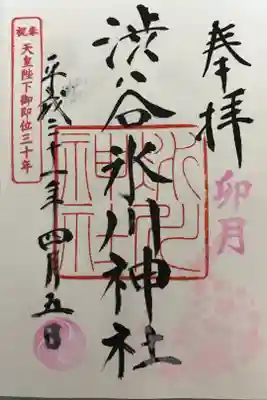 奉拝
卯月
渋谷氷川神社
氷川神社
平成三十一年四月五日
奉祝
天皇陛下御即位三十年